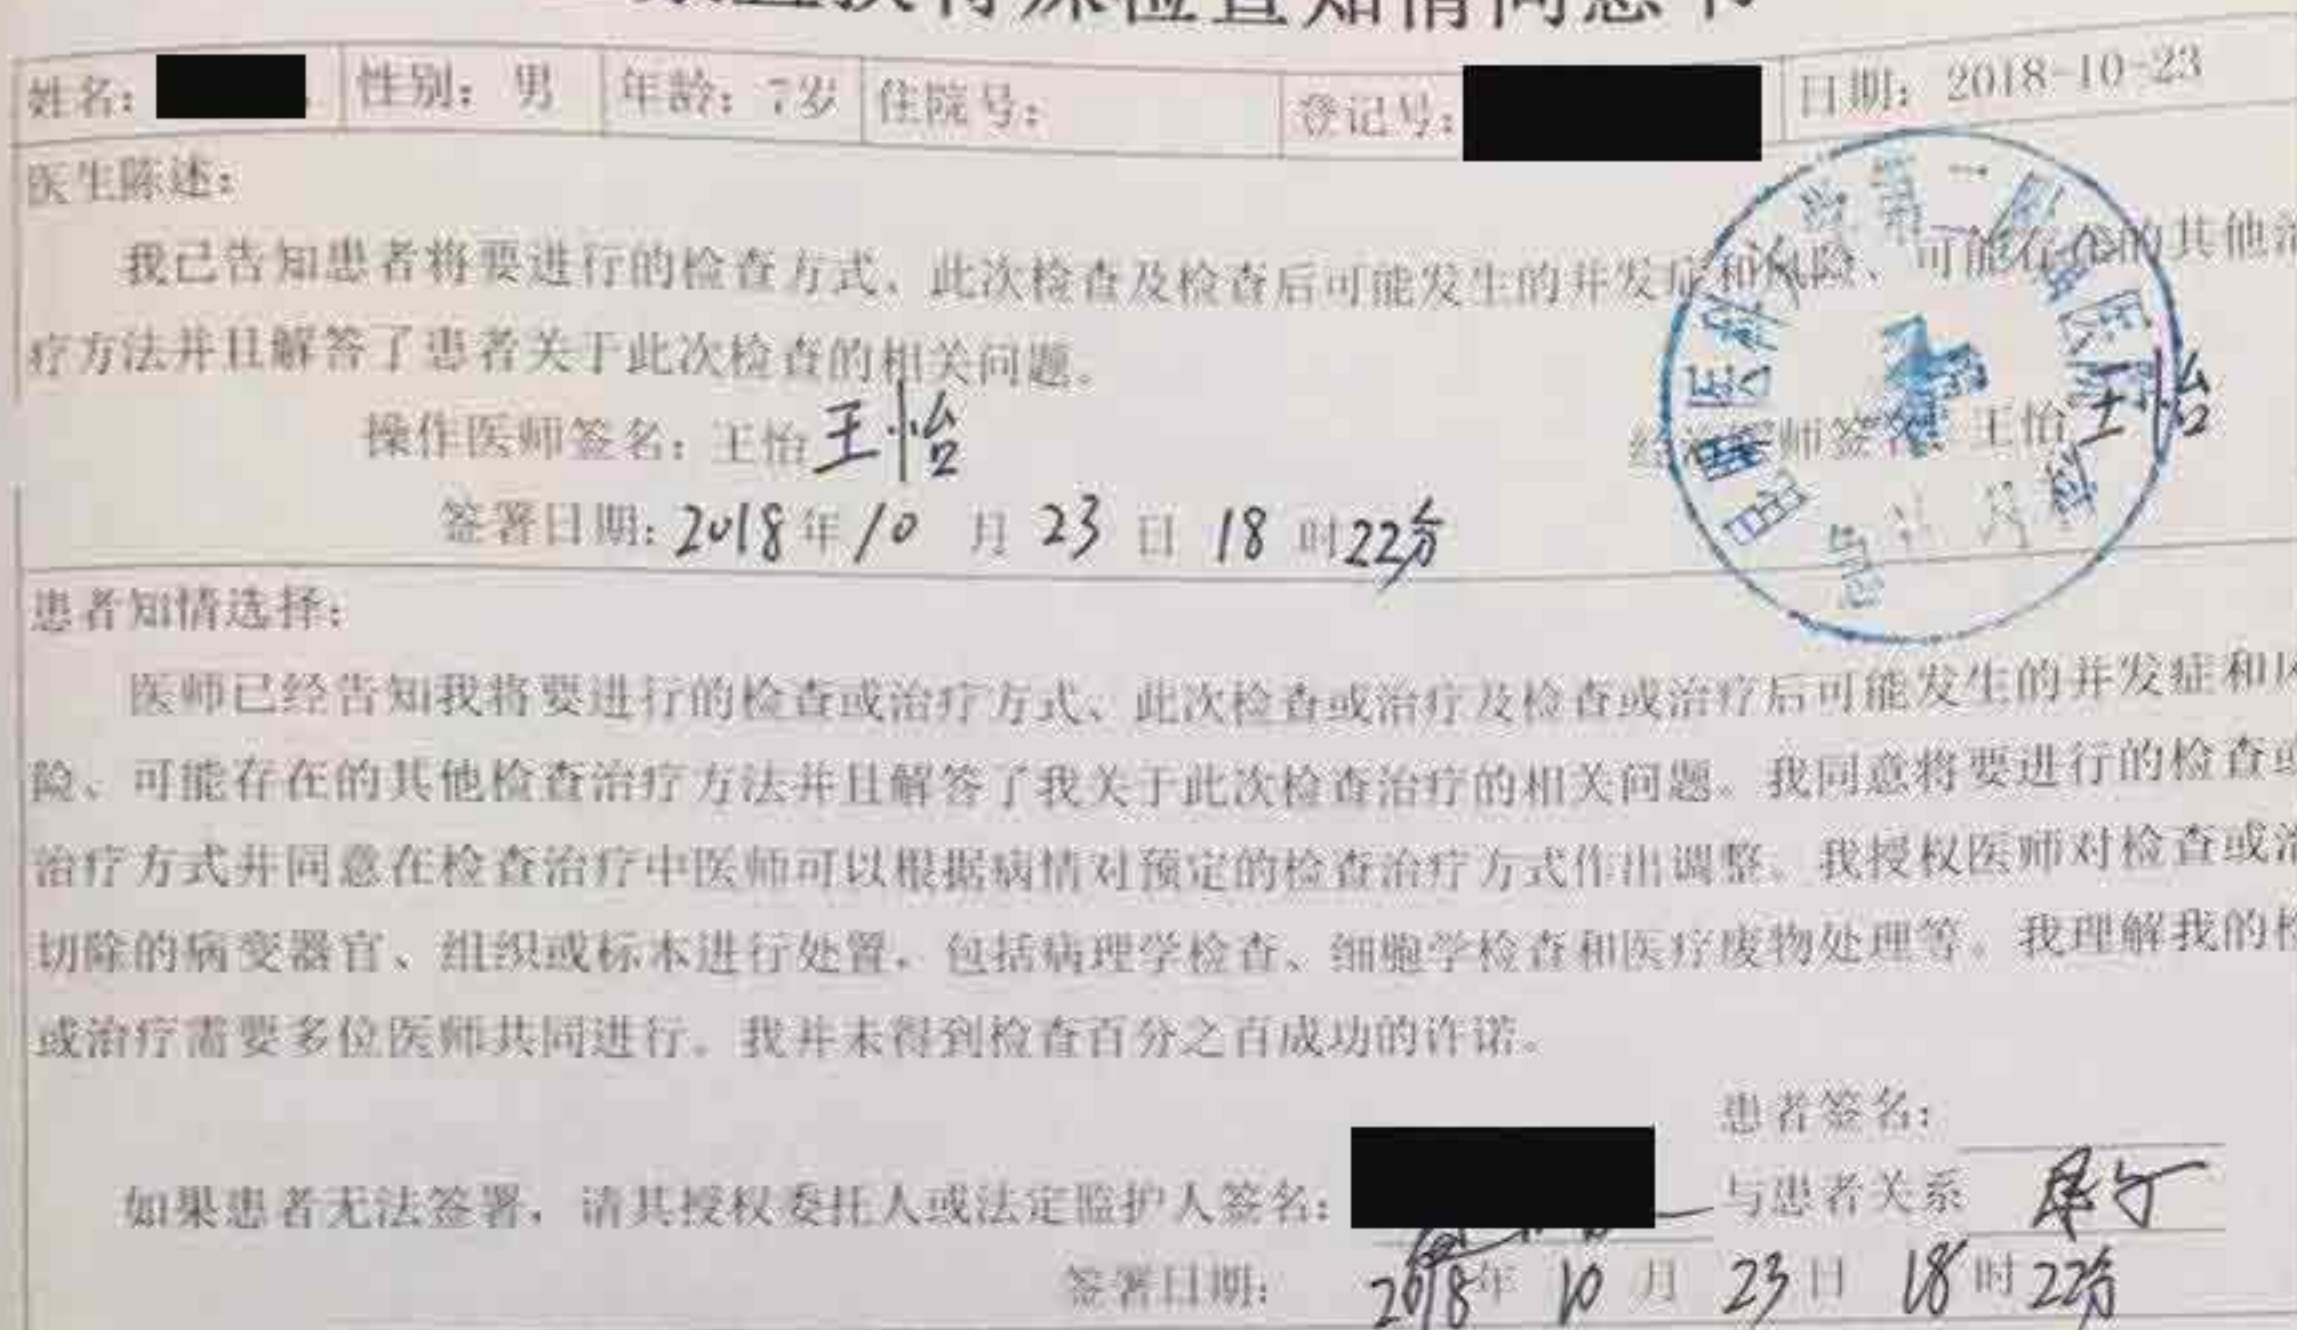 特殊检查知情同意书
姓名： 性别：男 年龄：7岁 住院号： 登记号： 日期：2018-10-23
医生陈述：
我已告知患者将要进行的检查方式、此次检查及检查后可能发生的并发症和风险、可能存在的其他治
疗方法并且解答了患者关于此次检查的相关问题。
操作医师签名：王怡 王怡 经治医师签名：王怡 王怡
签署日期：2018年10月23日18时22分
昆明医科大学第一附属医院
患者知情选择：
医师已经告知我将要进行的检查或治疗方式、此次检查或治疗及检查或治疗后可能发生的并发症和风
险、可能存在的其他检查治疗方法并且解答了我关于此次检查治疗的相关问题。我同意将要进行的检查或
治疗方式并同意在检查治疗中医师可以根据病情对预定的检查治疗方式作出调整。我授权医师对检查或治
切除的病变器官、组织或标本进行处置，包括病理学检查、细胞学检查和医疗废物处理等。我理解我的检
或治疗需要多位医师共同进行。我并未得到检查百分之百成功的许诺。
患者签名：
如果患者无法签署，请其授权委托人或法定监护人签名： 与患者关系
签署日期： 2018年10月23日18时22分